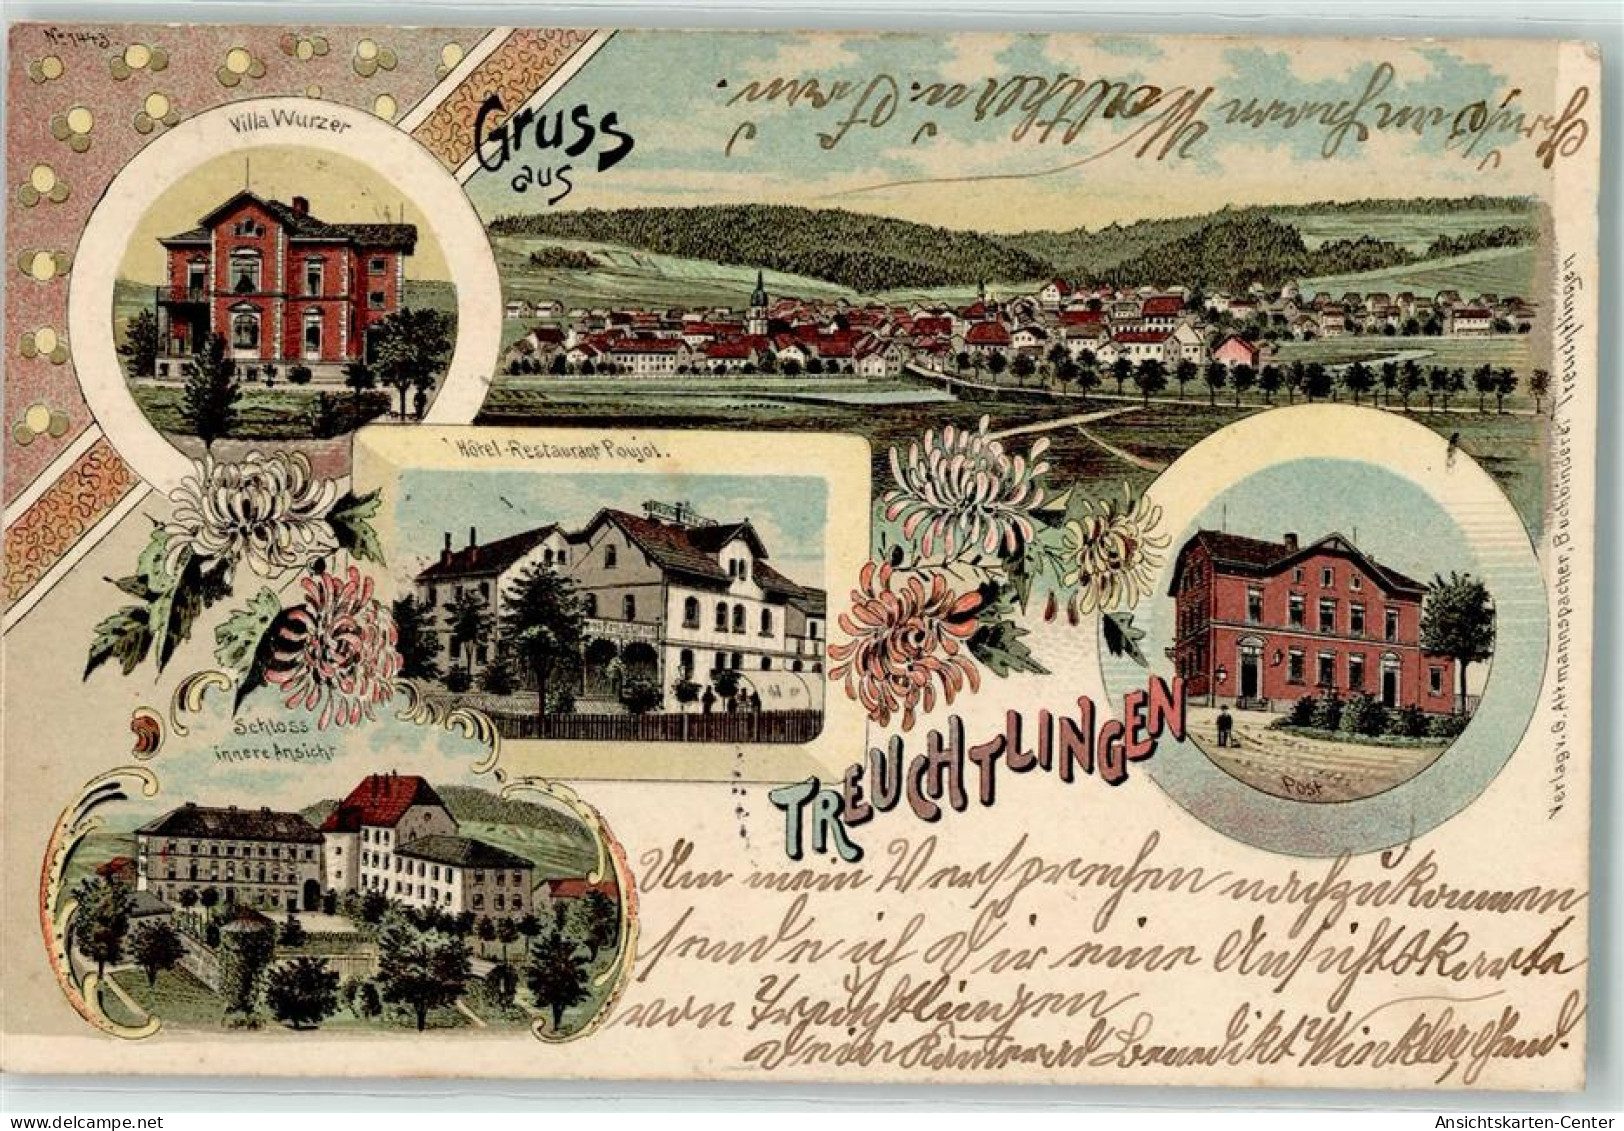 No 1443.
Villa Wurzer
Gruss
aus
Hôtel-Restaurant Poujol.
Schloss
innere Ansicht
Post
TREUCHTLINGEN
Verlag v. G. Attmannspacher, Buchbinderei Treuchtlingen
Um mein Versprechen nachzukommen
sende ich Dir eine Ansichtskarte
von Treuchtlingen
Dein Kamerad Benedikt Winkler,
Ansichtskarten-Center
www.ansichtskarten-center.de